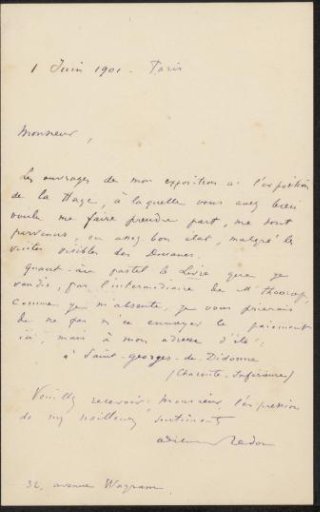 1 Juin 1901. Paris
Monsieur,
Les ouvrages de mon exposition à l'exposition
de la Haye, à laquelle vous avez bien
voulu me faire prendre part, me sont
parvenus, en assez bon état, malgré les
visites visibles des Douanes.
Quant au pastel le Livre que j'ai
vendu, par l'intermédiaire de Mr
comme je m'absente, je vous prierais
de ne pas m'en envoyer le paiement
ici, mais à mon adresse d'été:
à Saint-Georges-de-Didonne
(Charente-Inférieure)
Veuillez recevoir Monsieur l'expression
de mes meilleurs sentiments
Odilon Redon
32, avenue Wagram.